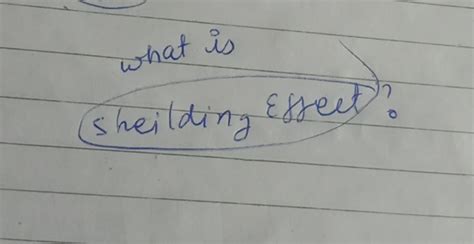 what is
sheilding Effect?